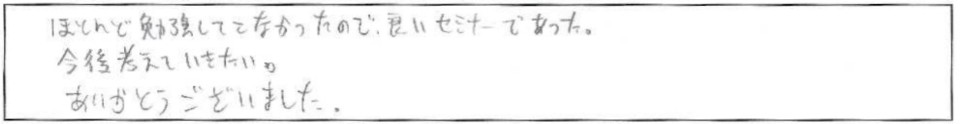 ほとんど勉強してこなかったので、良いセミナーであった。
今後考えていきたい。
ありがとうございました。